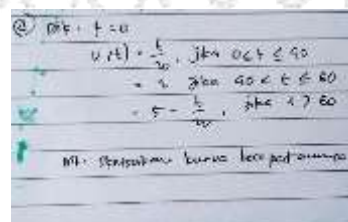 ② Dik. t = 0
v(t) = t/20, jika 0 ≤ t ≤ 40
= 2 jika 40 < t ≤ 60
= 5 - t/20, jika t > 60
kurva kecepatannya